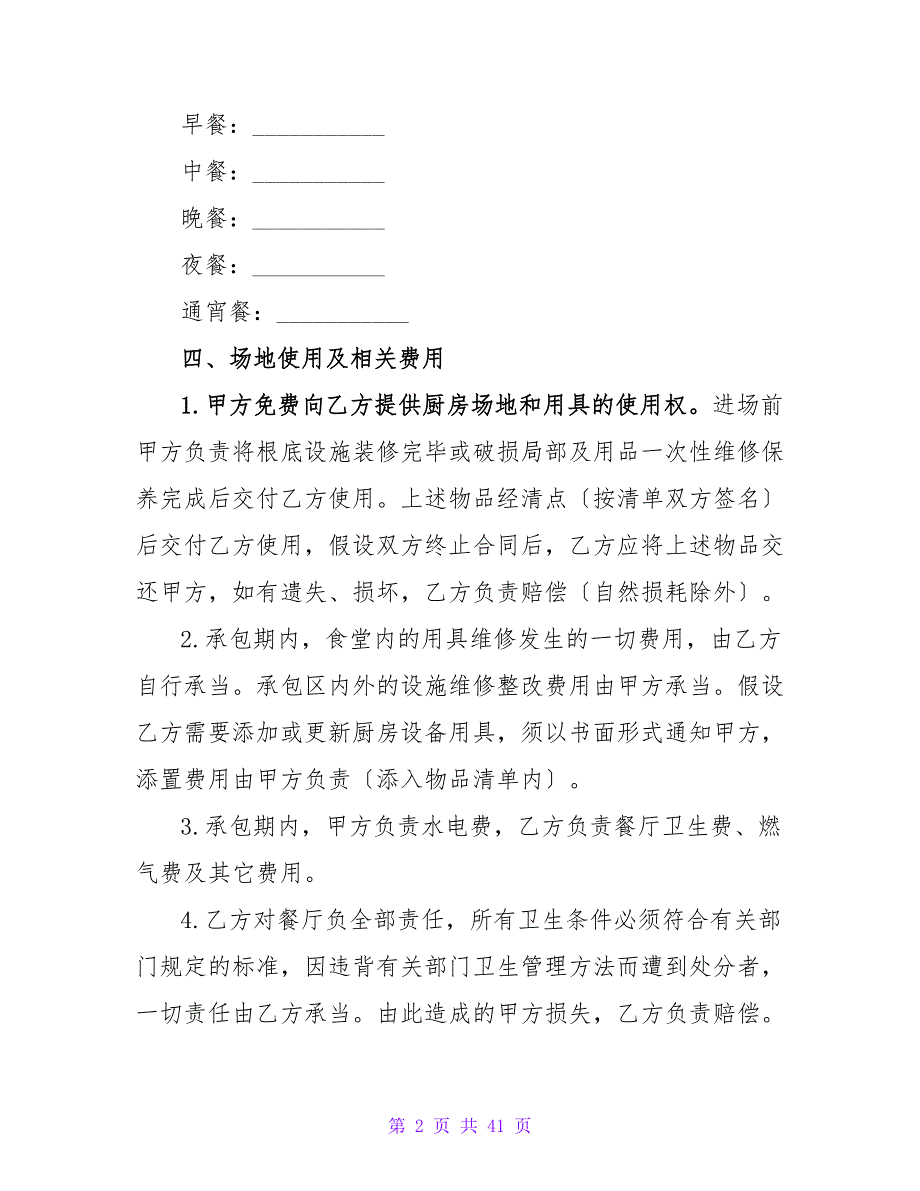 早餐：___________
中餐：___________
晚餐：___________
夜餐：___________
通宵餐：___________
四、场地使用及相关费用
1.甲方免费向乙方提供厨房场地和用具的使用权。进场前
甲方负责将根底设施装修完毕或破损局部及用品一次性维修保
养完成后交付乙方使用。上述物品经清点〔按清单双方签名〕
后交付乙方使用，假设双方终止合同后，乙方应将上述物品交
还甲方，如有遗失、损坏，乙方负责赔偿〔自然损耗除外〕。
2.承包期内，食堂内的用具维修发生的一切费用，由乙方
自行承当。承包区内外的设施维修整改费用由甲方承当。假设
乙方需要添加或更新厨房设备用具，须以书面形式通知甲方，
添置费用由甲方负责〔添入物品清单内〕。
3.承包期内，甲方负责水电费，乙方负责餐厅卫生费、燃
气费及其它费用。
4.乙方对餐厅负全部责任，所有卫生条件必须符合有关部
门规定的标准，因违背有关部门卫生管理方法而遭到处分者，
一切责任由乙方承当。由此造成的甲方损失，乙方负责赔偿。
第 2 页 共 41 页